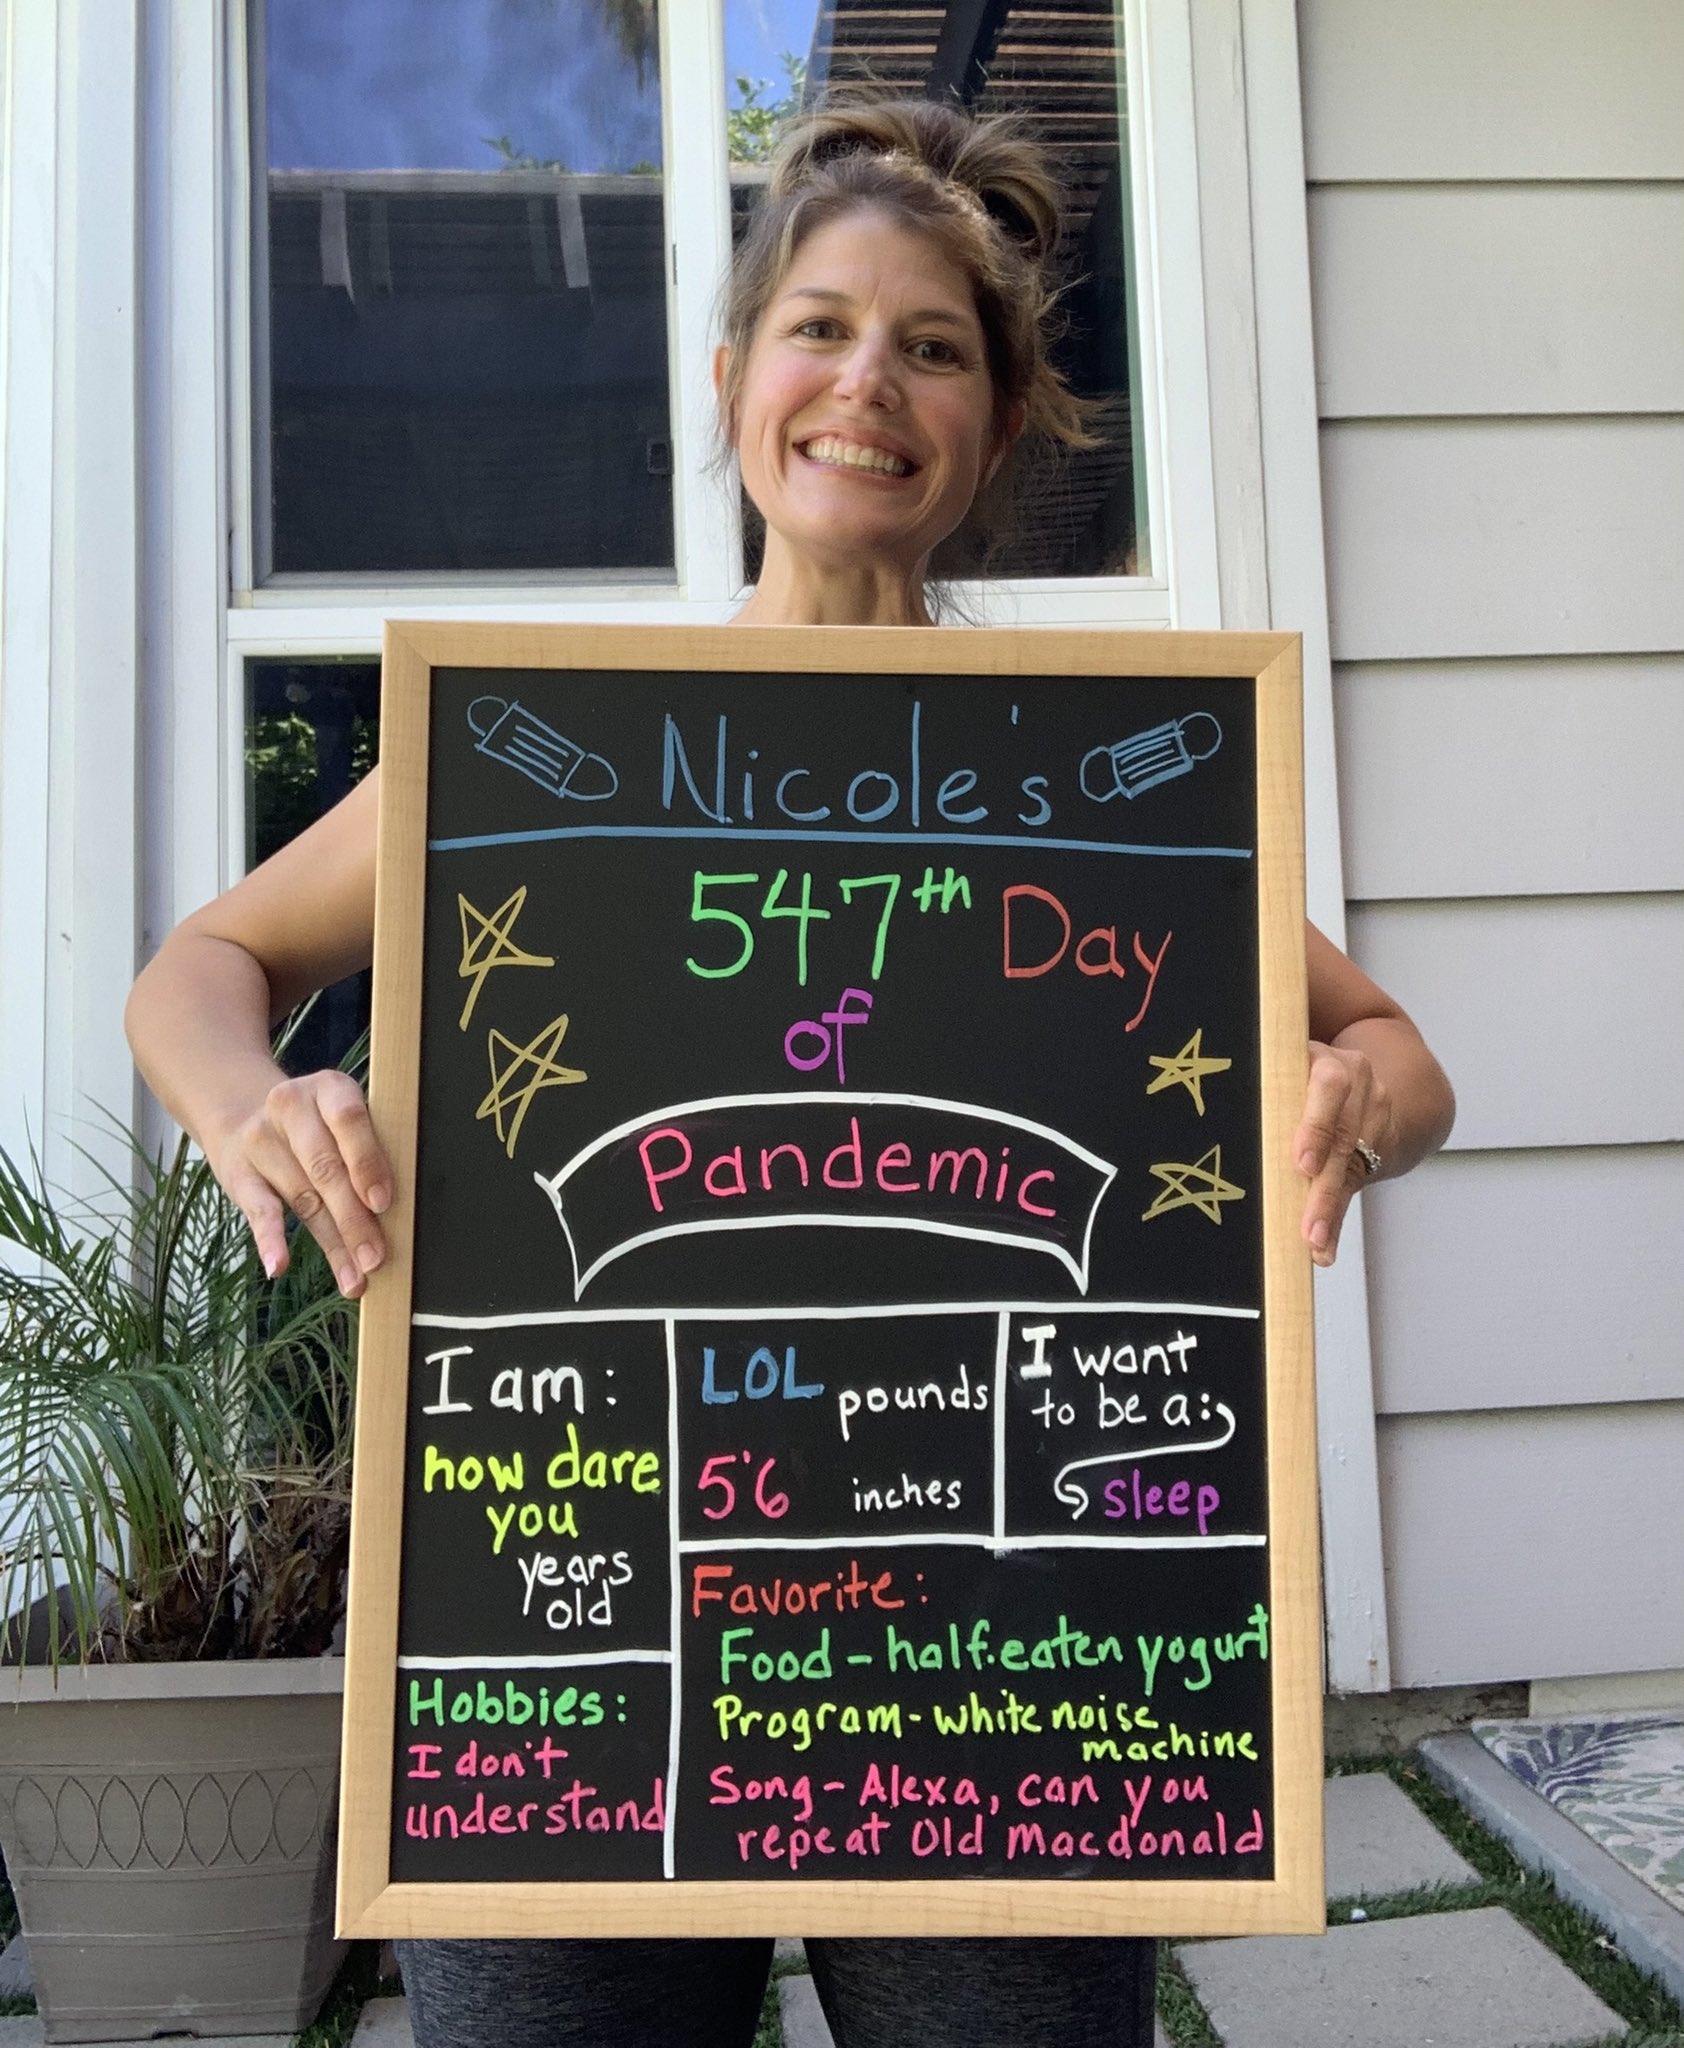 Nicole's
547th Day
of
Pandemic
I am:
how dare
you
years
old
LOL pounds
5'6 inches
I want
to be a:
sleep
Hobbies:
I don't
understand
Favorite:
Food - half-eaten yogurt
Program - white noise
machine
Song - Alexa, can you
repeat Old Macdonald